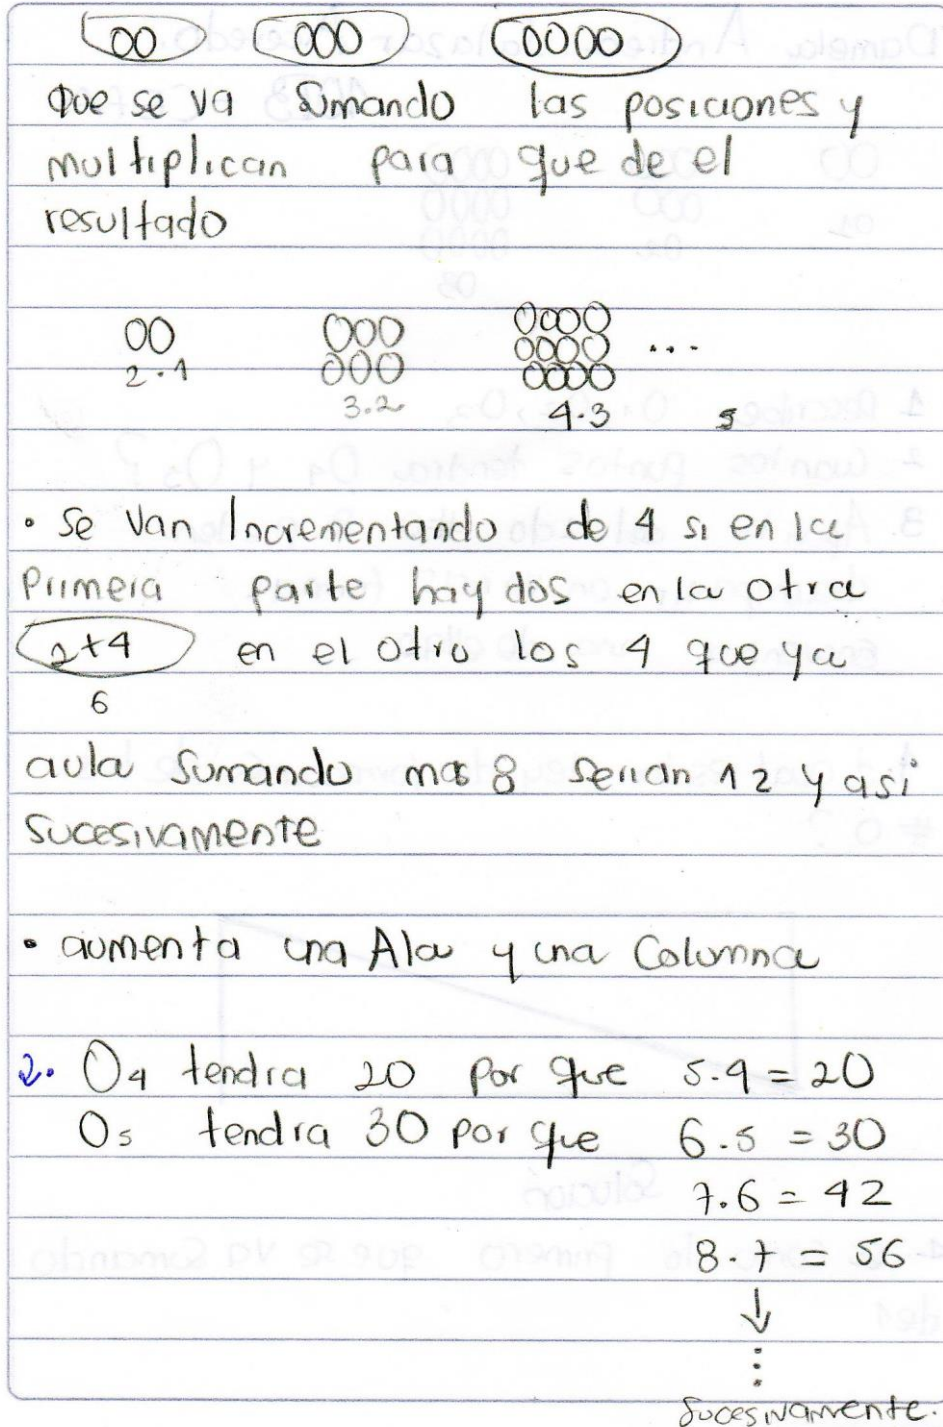 OO OOO OOOO
Que se va Sumando las posiciones y
multiplican para que de el
resultado
OO OOO OOOO
2.1 OOO OOOO ...
OOOO
3.2 4.3 5
• Se van Incrementando de 4 si en la
Primera parte hay dos en la otra
2+4 en el otro los 4 que ya
6
avia Sumando mas 8 Serian 12 y asi
sucesivamente
• aumenta una fila y una Columna
2. O4 tendra 20 por que 5.4 = 20
O5 tendra 30 por que 6.5 = 30
7.6 = 42
8.7 = 56
↓
⋮
Sucesivamente.